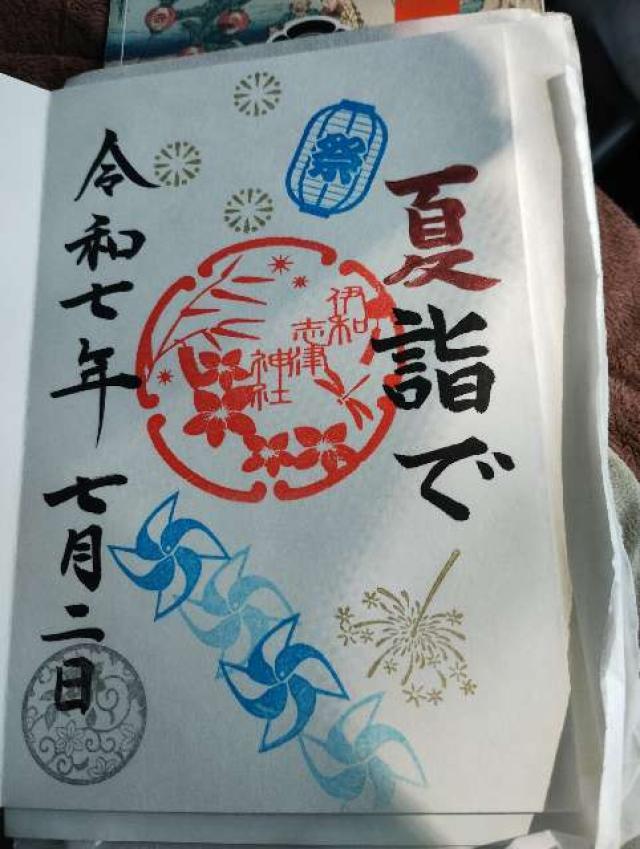 夏詣で
祭
伊和
志津
神社
令和七年 七月二日